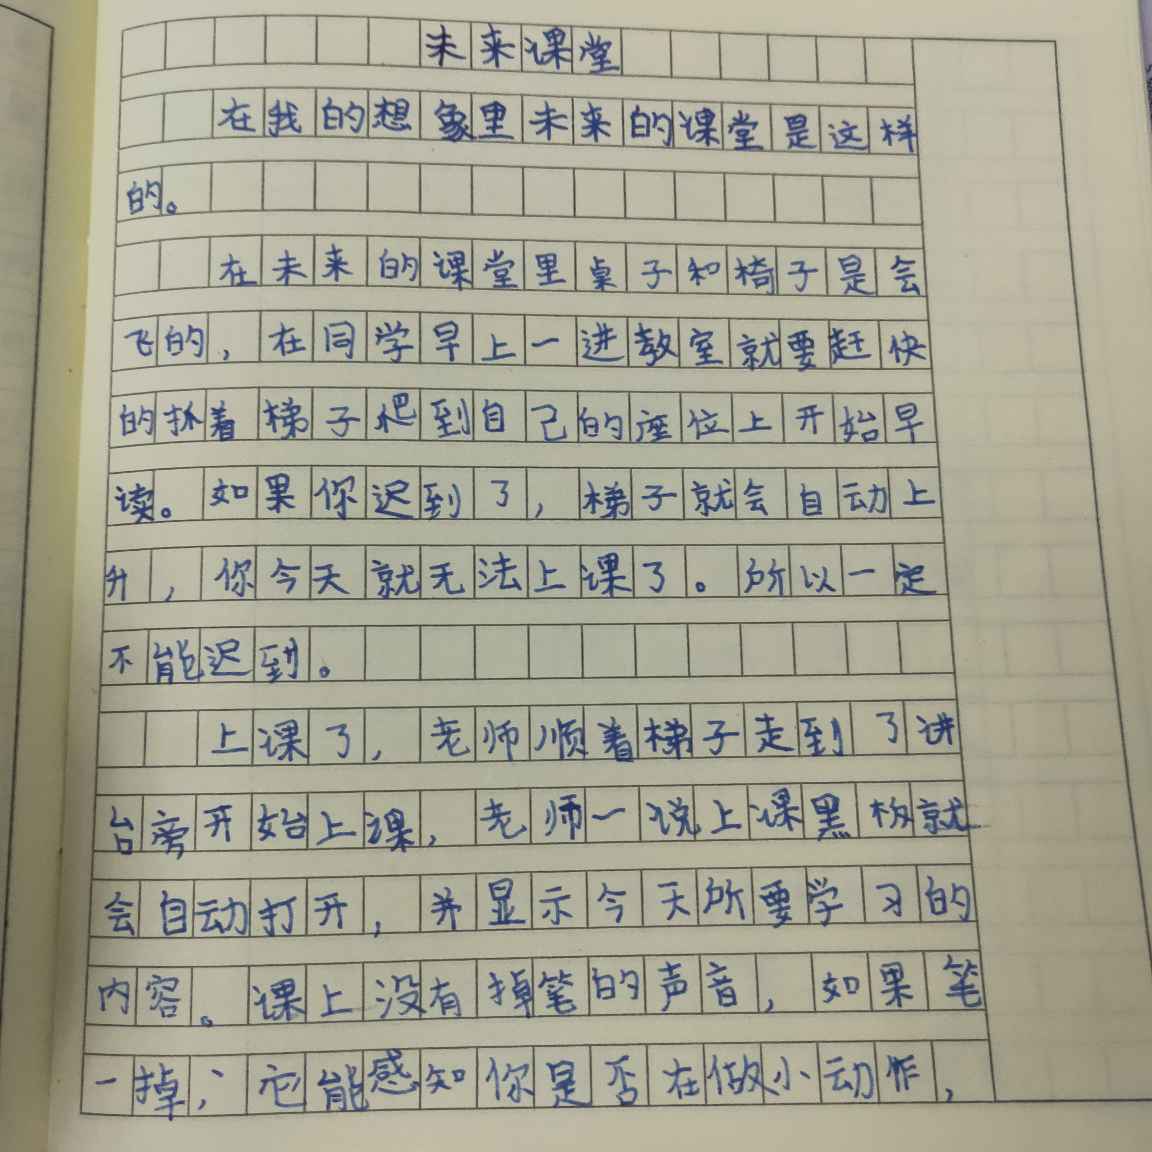 未来课堂
在我的想象里未来的课堂是这样
的。
在未来的课堂里桌子和椅子是会
飞的，在同学早上一进教室就要赶快
的抓着梯子爬到自己的座位上开始早
读。如果你迟到了，梯子就会自动上
升，你今天就无法上课了。所以一定
不能迟到。
上课了，老师顺着梯子走到了讲
台旁开始上课，老师一说上课黑板就
会自动打开，并显示今天所要学习的
内容。课上没有掉笔的声音，如果笔
一掉，它能感知你是否在做小动作，